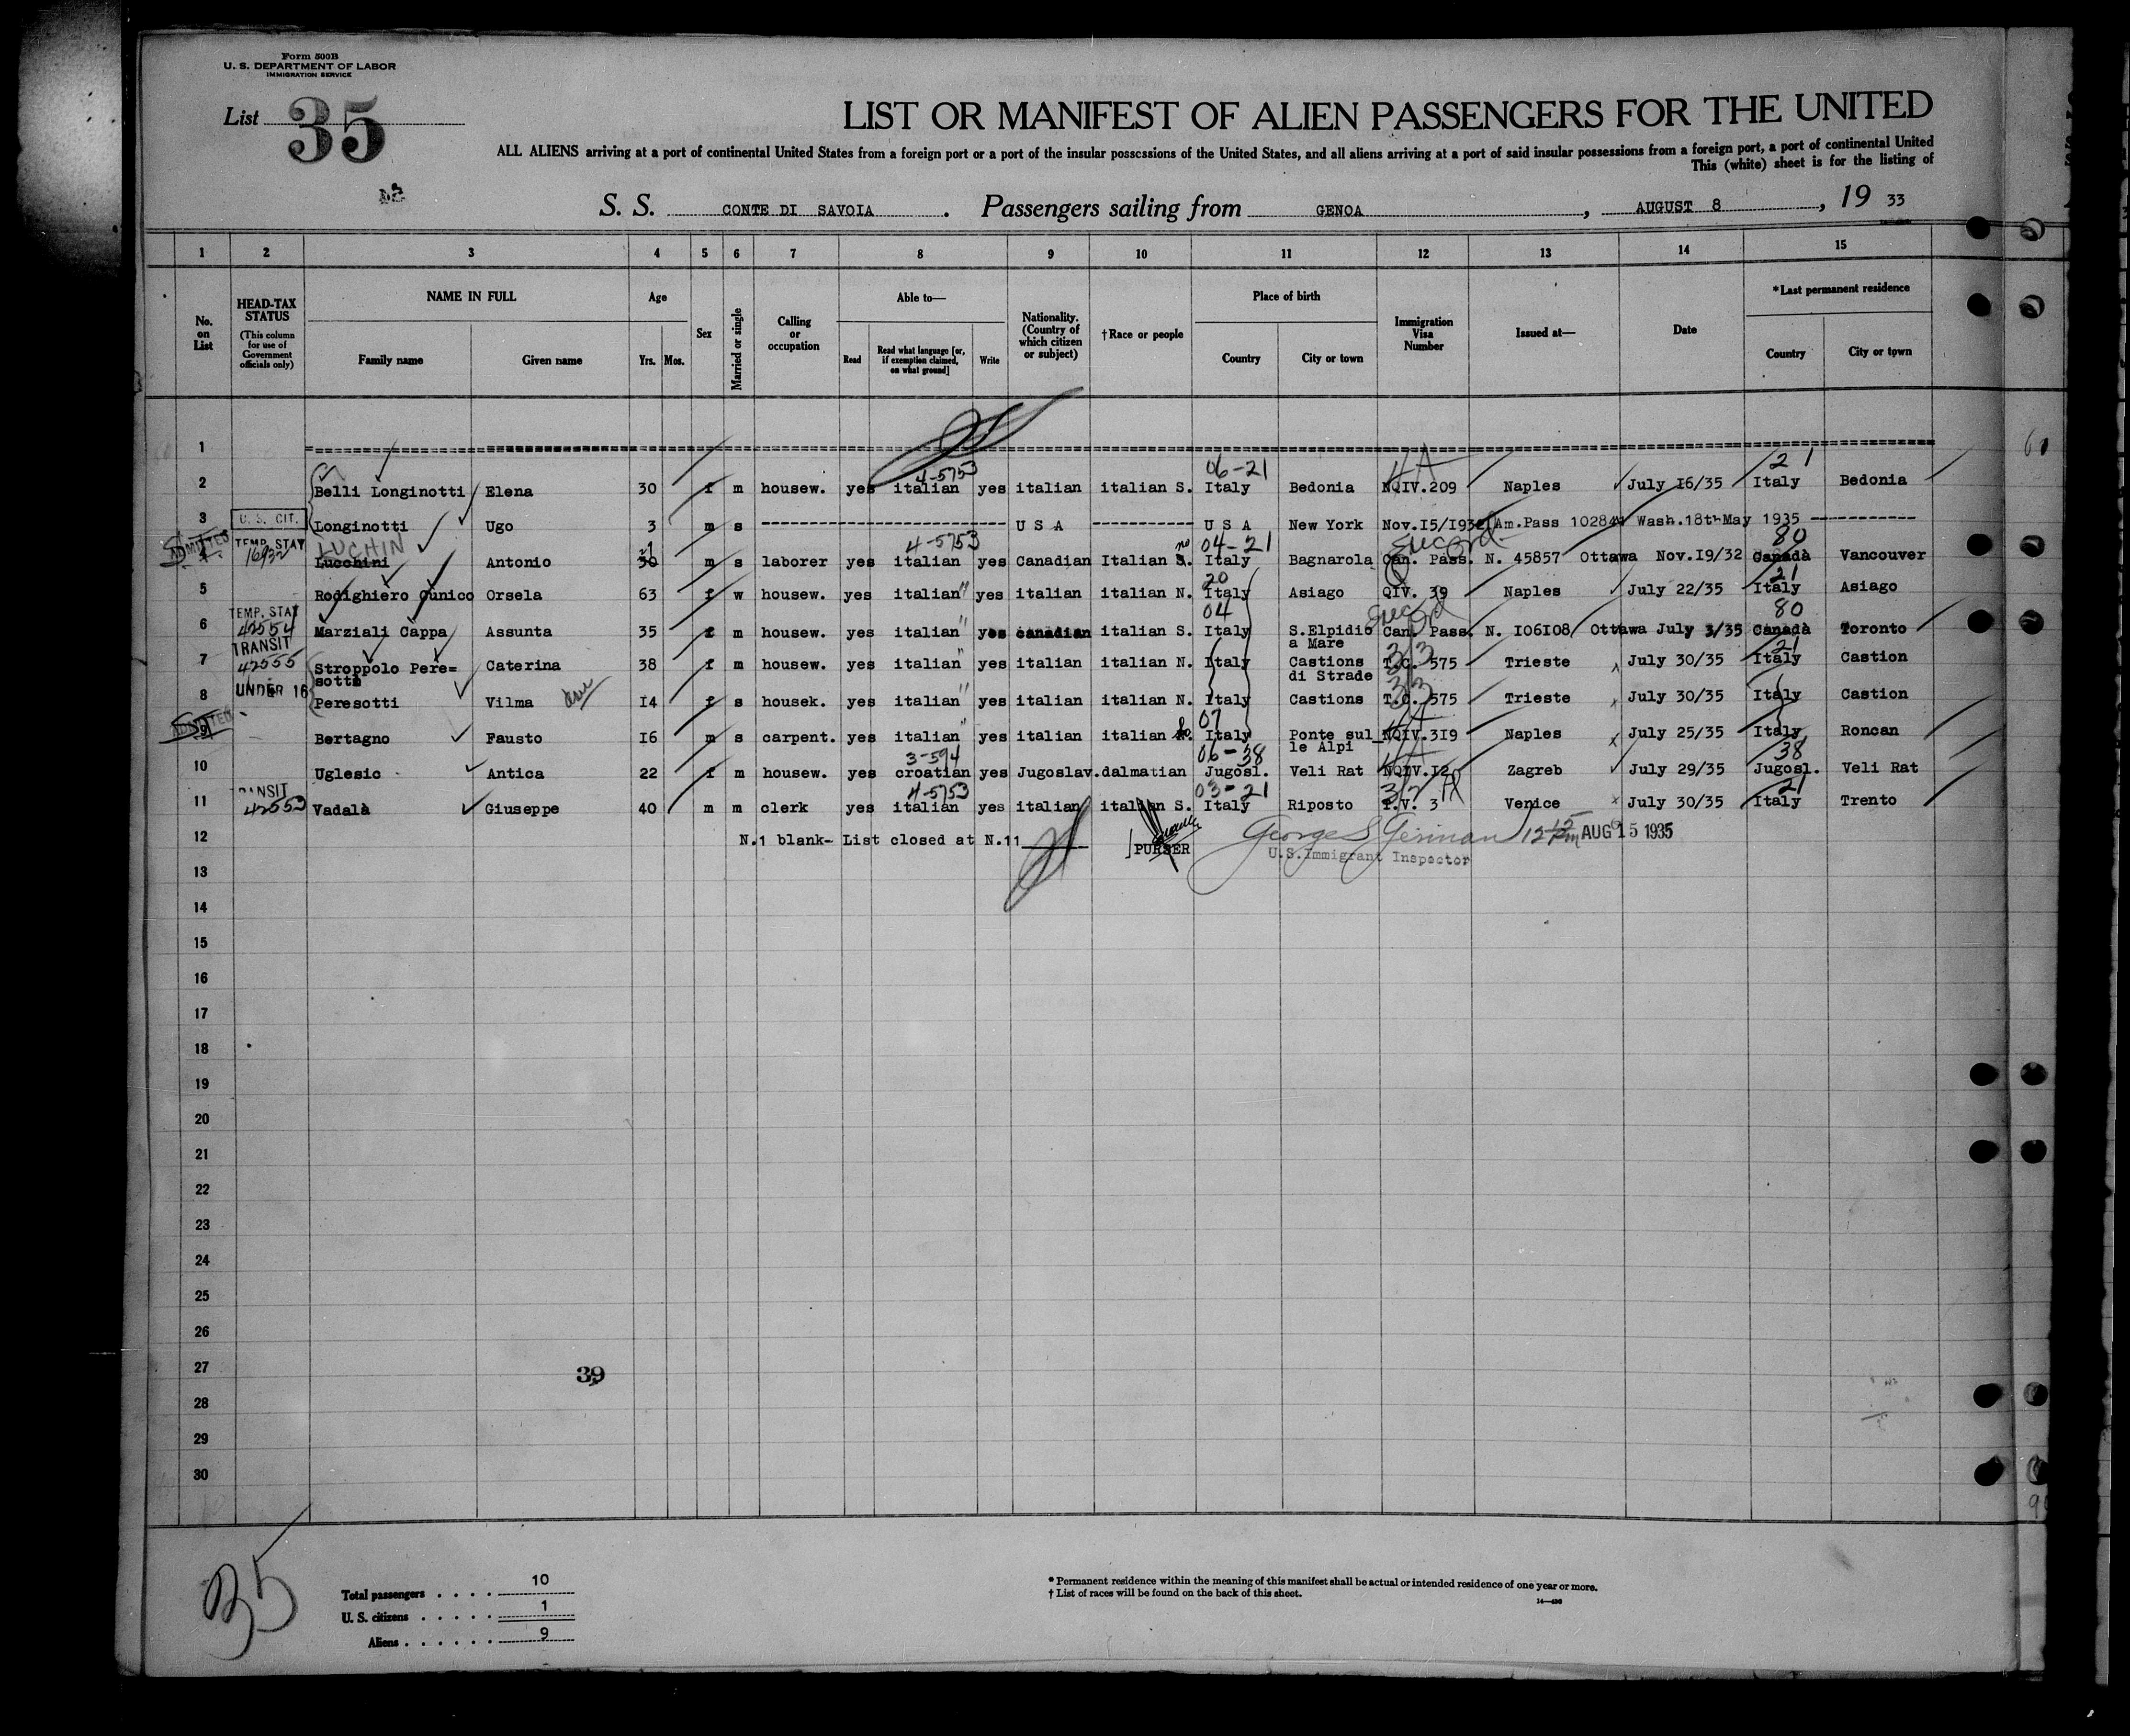 Form 500B
U. S. DEPARTMENT OF LABOR
IMMIGRATION SERVICE
List 35
LIST OR MANIFEST OF ALIEN PASSENGERS FOR THE UNITED
ALL ALIENS arriving at a port of continental United States from a foreign port or a port of the insular possessions of the United States, and all aliens arriving at a port of said insular possessions from a foreign port, a port of continental United
This (white) sheet is for the listing of
S. S. CONTE DI SAVOIA . Passengers sailing from GENOA , AUGUST 8 , 19 33
1 2 3 4 5 6 7 8 9 10 11 12 13 14 15
No. on List
HEAD-TAX STATUS (This column for use of Government officials only)
NAME IN FULL Family name Given name
Age Yrs. Mos.
Sex
Married or single
Calling or occupation
Able to— Read Read what language [or, if exemption claimed, on what ground] Write
Nationality. (Country of which citizen or subject)
†Race or people
Place of birth Country City or town
Immigration Visa Number
Issued at—
Date
*Last permanent residence Country City or town
1
4-5753 06-21 4A 21
2 Belli Longinotti Elena 30 f m housew. yes italian yes italian italian S. Italy Bedonia NQIV.209 Naples July I6/35 Italy Bedonia
3 U. S. CIT. Longinotti Ugo 3 m s U S A U S A New York Nov.I5/1932 Am.Pass 10284 Wash.18th May 1935
ADMITTED TEMP. STAY 16932 LUCHIN 4-5753 no 04-21 80
Lucchini Antonio 30 m s laborer yes italian yes Canadian Italian S. Italy Bagnarola Can. Pass. N. 45857 Ottawa Nov.I9/32 Canada Vancouver
20 21
5 Rodighiero Cunico Orsela 63 f w housew. yes italian " yes italian italian N. Italy Asiago QIV. 39 Naples July 22/35 Italy Asiago
TEMP. STAY 42554 04 80
6 Marziali Cappa Assunta 35 f m housew. yes italian " yes canadian italian S. Italy S.Elpidio a Mare Can. Pass. N. I06I08 Ottawa July 3/35 Canada Toronto
TRANSIT 42555 3/3 21
7 Stroppolo Pere=sotta Caterina 38 f m housew. yes italian " yes italian italian N. Italy Castions di Strade T.C. 575 Trieste July 30/35 Italy Castion
UNDER 16 3/3
8 Peresotti Vilma I4 f s housek. yes italian " yes italian italian N. Italy Castions T.C. 575 Trieste July 30/35 Italy Castion
ADMITTED 07 4A
9 Bertagno Fausto I6 m s carpent. yes italian " yes italian italian Italy Ponte sulle Alpi NQIV.3I9 Naples July 25/35 Italy Roncan
3-594 06-38 4A 38
10 Uglesic Antica 22 f m housew. yes croatian yes Jugoslav. dalmatian Jugosl. Veli Rat NQIV.I2 Zagreb July 29/35 Jugosl. Veli Rat
TRANSIT 42553 4-5753 03-21 21
11 Vadalà Giuseppe 40 m m clerk yes italian yes italian italian S. Italy Riposto T.V. 3 Venice July 30/35 Italy Trento
12 N.1 blank- List closed at N.11 PURSER George S German AUG 15 1935
U.S.Immigrant Inspector
13
14
15
16
17
18
19
20
21
22
23
24
25
26
27
39
28
29
30
35
Total passengers . . . . 10
U. S. citizens . . . . . 1
Aliens . . . . . . 9
* Permanent residence within the meaning of this manifest shall be actual or intended residence of one year or more.
† List of races will be found on the back of this sheet.